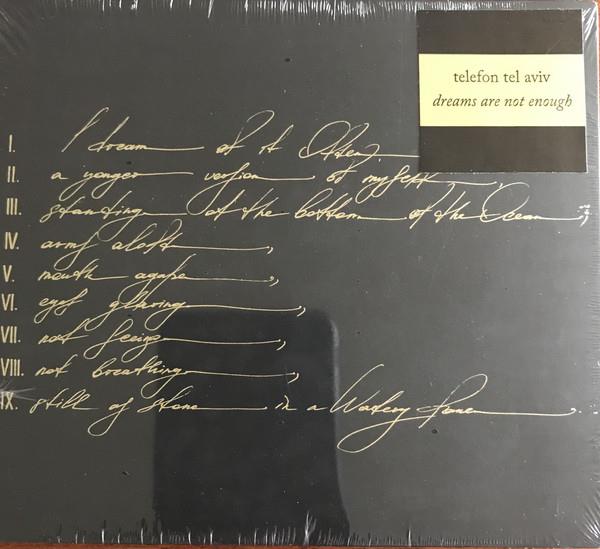 telefon tel aviv
dreams are not enough
I. I dream of it Often;
II. a younger version of myself,
III. standing at the bottom of the Ocean;
IV. arms aloft,
V. mouth agape,
VI. eyes glaring,
VII. not seeing,
VIII. not breathing,
IX. still as stone in a Watery Fane.